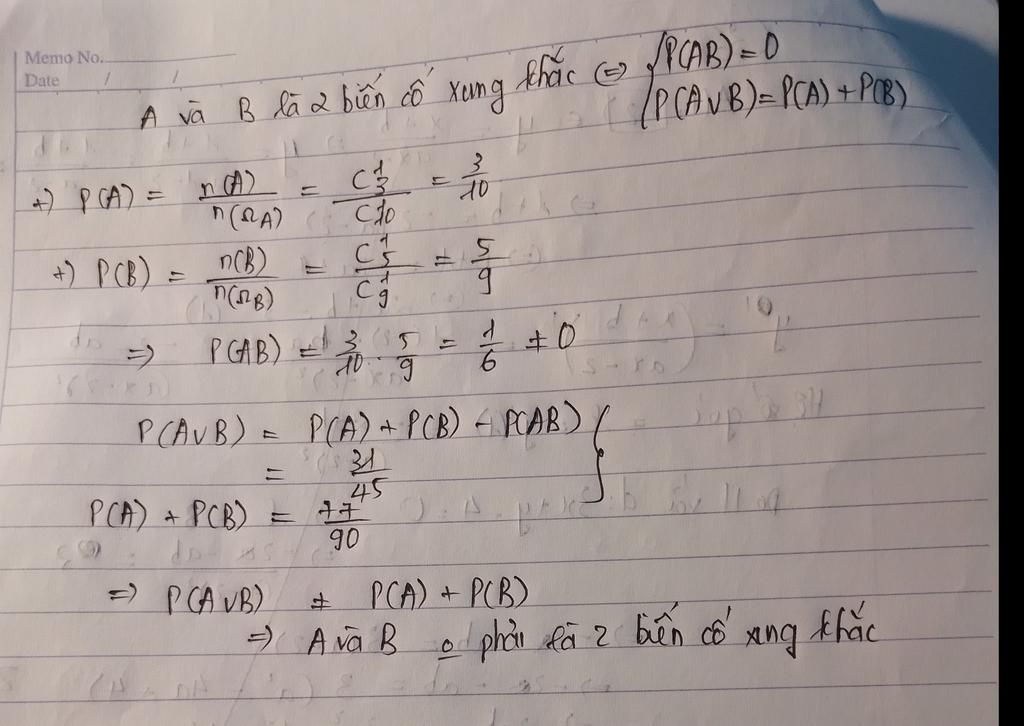 Memo No.
Date / /
A và B là 2 biến cố xung khắc ⇔ { P(AB) = 0
P(A∪B) = P(A) + P(B)
+) P(A) = n(A)/n(Ω_A) = C¹₃/C¹₁₀ = 3/10
+) P(B) = n(B)/n(Ω_B) = C¹₅/C¹₉ = 5/9
⇒ P(AB) = 3/10 . 5/9 = 1/6 ≠ 0
P(A∪B) = P(A) + P(B) - P(AB) }
= 31/45
P(A) + P(B) = 77/90
⇒ P(A∪B) ≠ P(A) + P(B)
⇒ A và B o phải là 2 biến cố xung khắc